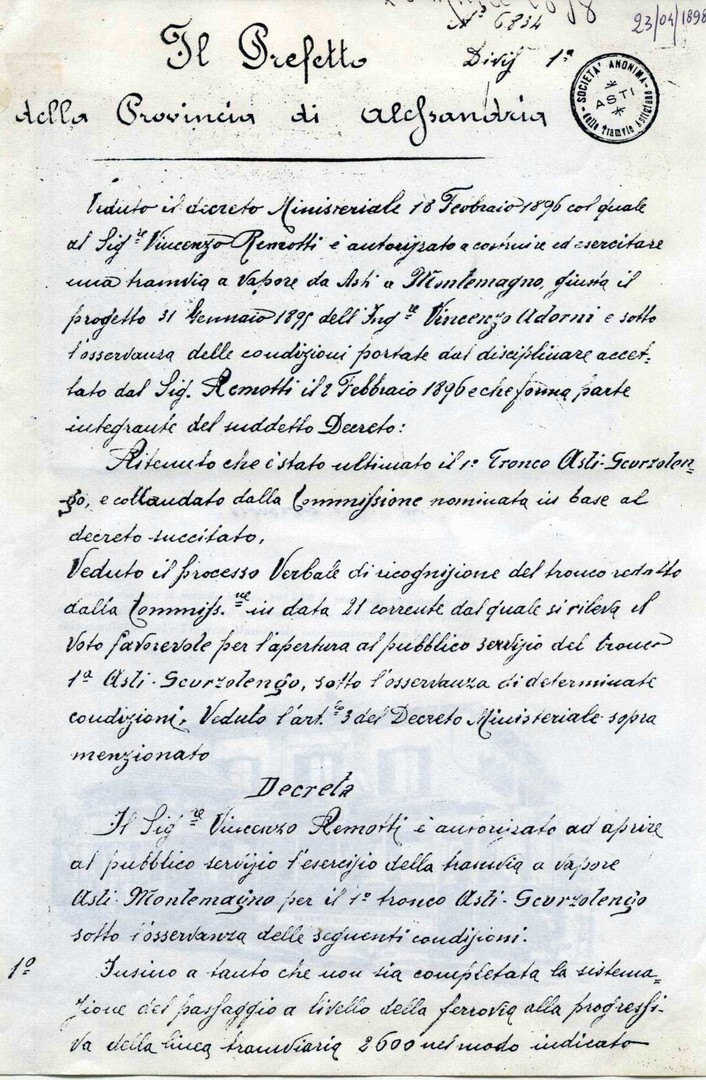 N° 6834
23/04/1898
Il Prefetto
Divis 1ª
della Provincia di Alessandria
SOCIETA' ANONIMA
ASTI
delle tramvie Astigiane
Veduto il decreto Ministeriale 18 Febbraio 1896 col quale
al Sigre Vincenzo Remotti è autorizzato a costruire ed esercitare
una tramvia a vapore da Asti a Montemagno, giusta il
progetto 31 Gennaio 1895 dell'Ingre Vincenzo Adorni e sotto
l'osservanza delle condizioni portate dal disciplinare accet-
tato dal Sig. Remotti il 2 Febbraio 1896 e che forma parte
integrante del suddetto Decreto:
Ritenuto che è stato ultimato il 1° Tronco Asti-Scurzolen=
go, e collaudato dalla Commissione nominata in base al
decreto succitato,
Veduto il processo Verbale di ricognizione del tronco redatto
dalla Commiss.ne in data 21 corrente dal quale si rileva il
voto favorevole per l'apertura al pubblico servizio del tronco
1ª Asti-Scurzolengo, sotto l'osservanza di determinate
condizioni, Veduto l'art. 3 del Decreto Ministeriale sopra
menzionato
Decreta
Il Sigre Vincenzo Remotti è autorizzato ad aprire
al pubblico servizio l'esercizio della tramvia a vapore
Asti-Montemagno per il 1° tronco Asti-Scurzolengo
sotto l'osservanza delle seguenti condizioni.
1° Insino a tanto che non sia completata la sistema=
zione del passaggio a livello della ferrovia alla progressi-
va della linea tramviaria 2600 nel modo indicato